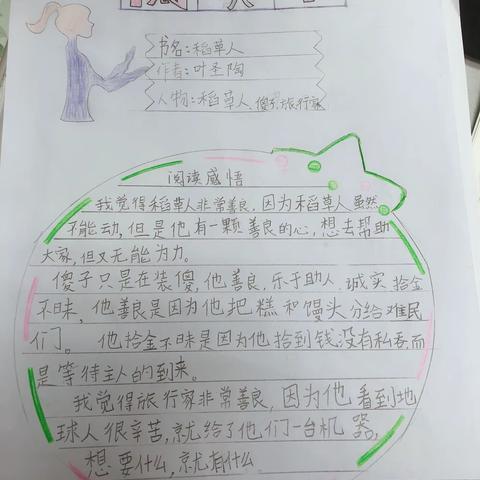 书名:稻草人
作者:叶圣陶
人物:稻草人 傻子 旅行家
阅读感悟
我觉得稻草人非常善良,因为稻草人虽然
不能动,但是他有一颗善良的心,想去帮助
大家,但又无能为力。
傻子只是在装傻,他善良,乐于助人,诚实 拾金
不昧,他善良是因为他把糕和馒头分给难民
们。 他拾金不昧是因为他拾到钱没有私吞,而
是等待主人的到来。
我觉得旅行家非常善良,因为他看到地
球人很辛苦,就给了他们一台机器,
想要什么,就有什么